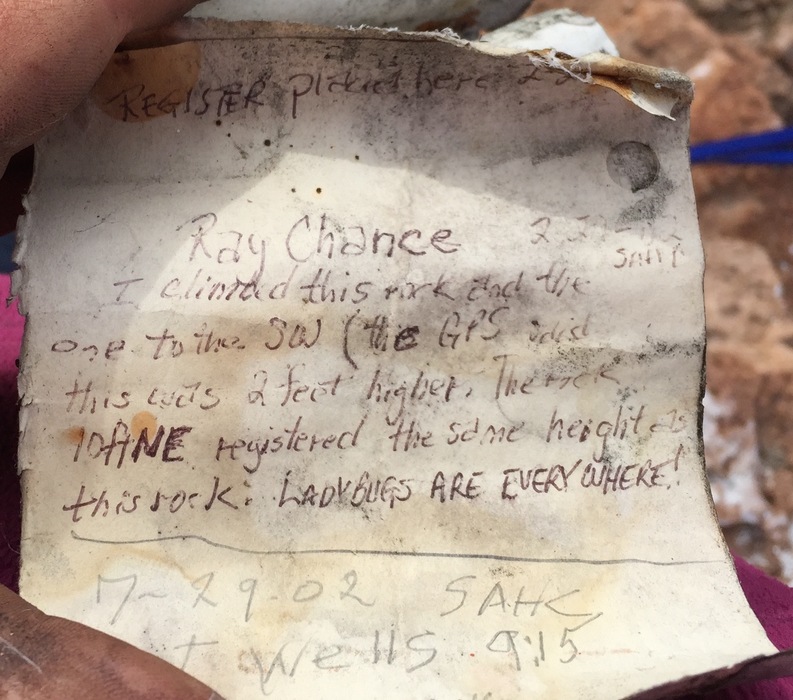 REGISTER placed here
Ray Chance
SAHC
I climbed this rock and the
one to the SW (the GPS said
this was 2 feet higher. The rock
to ANE registered the same height as
this rock. LADYBUGS ARE EVERYWHERE!
7-29-02 SAHC
Wells 9:15